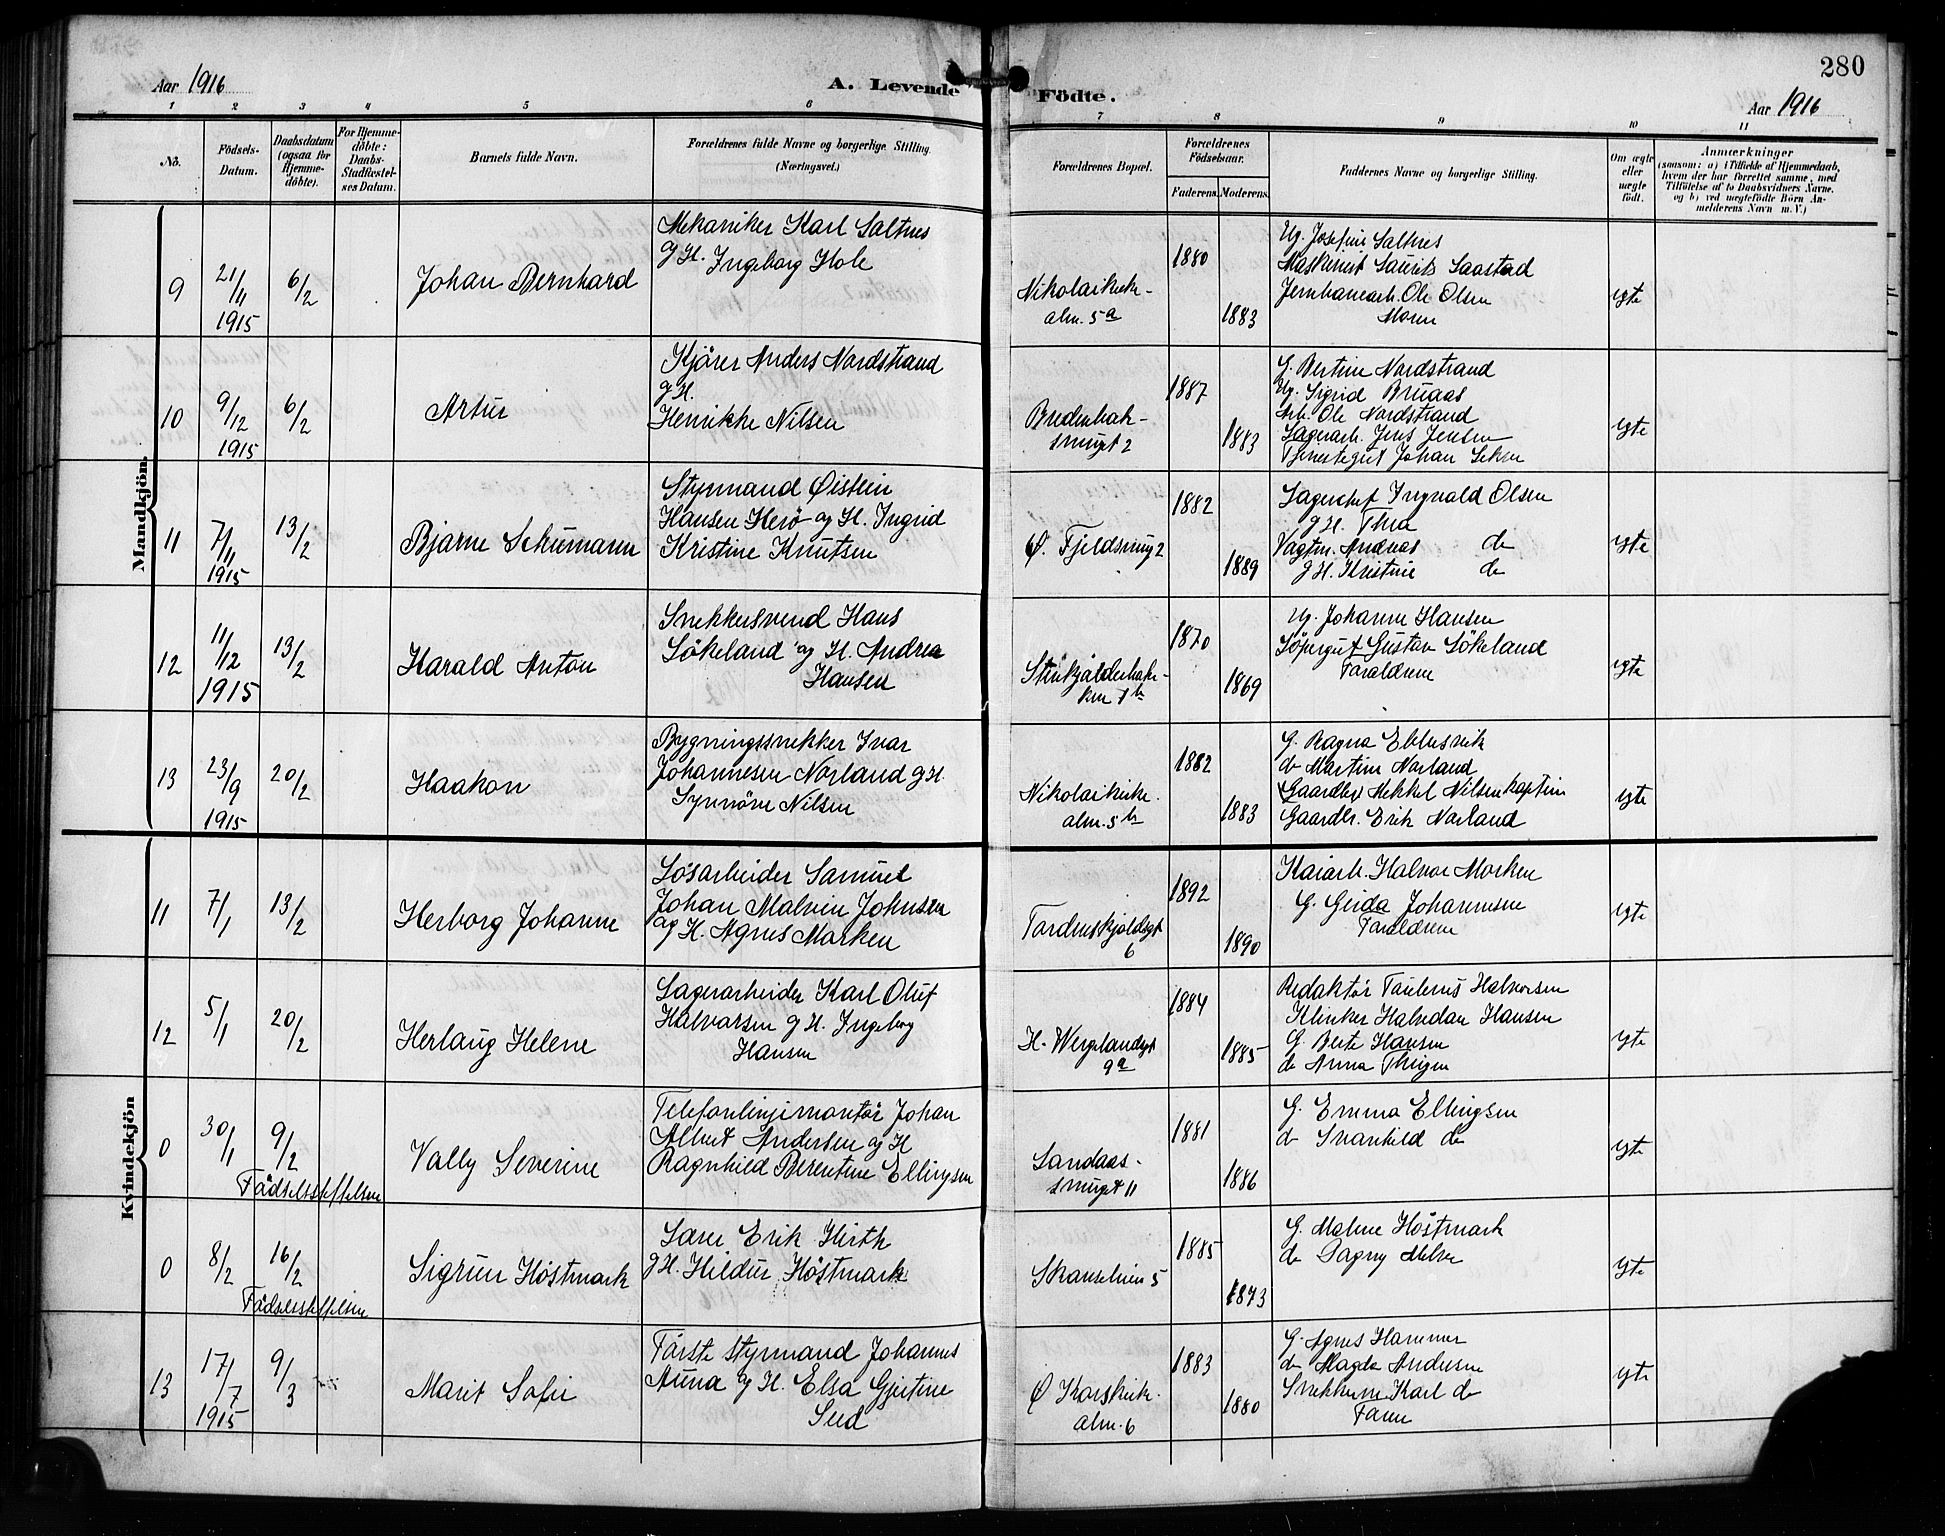 280
Aar 1916
A. Levende Födte.
Aar 1916
1 2 3 4 5 6 7 8 9 10 11
No.
Födsels-
Datum.
Daabsdatum
(ogsaa for
Hjemme-
döbte).
For Hjemme-
döbte:
Daabs-
Stadfæstel-
ses Datum.
Barnets fulde Navn.
Forældrenes fulde Navne og borgerlige Stilling.
(Næringsvei.)
Forældrenes Bopæl.
Forældrenes
Födselsaar.
Faderens. Moderens.
Faddernes Navne og borgerlige Stilling.
Om ægte
eller
uægte
födt.
Anmærkninger
(saasom: a) i Tilfælde af Hjemmedaab,
hvem der har forrettet samme, med
Tilföielse af to Daabsvidners Navne.
og b) ved uægtefödte Börn An-
melderens Navn m. V.)
Mandkjön.
9
21/11
1915
6/2
Johan Bernhard
Mekaniker Karl Saltnes
g H. Ingeborg Hole
Nikolaikirke-
alm. 5a
1880
1883
Ug. Josefine Saltnes
Maskinist Laurits Saastad
Jernbanearb. Ole Olsen
Moren
egte
10
9/12
1915
6/2
Artur
Kjörer Anders Nordstrand
g H.
Henrikke Nilsen
Bredenbak-
smuget 2
1887
1883
G. Bertine Nordstrand
Ug. Sigrid Bruaas
Arb. Ole Nordstrand
Lagerarb. Jens Jensen
Tjenestegut Johan
egte
11
7/11
1915
13/2
Bjarne Schumann
Styrmand Øistein
Hansen Herö og H. Ingrid
Kristine Knutsen
Ø. Fjeldsmug 2
1882
1889
Lagerchef Ingvald Olsen
g H. Thea
Vagtm. Andreas do
g H. Kristine do
egte
12
11/12
1915
13/2
Harald Anton
Snekkersvend Hans
Sökeland og H. Andrea
Hansen
Stenkjælderbak-
ken 1b
1870
1869
Ug. Johanne Hansen
Löpergut Gustav Sökeland
Forældrene
egte
13
23/9
1915
20/2
Haakon
Bygningssnekker Ivar
Johannesen Norland g H.
Synnöve Nilsen
Nikolaikirke.
alm. 5b
1882
1883
G. Ragna
do Martine Norland
Gaardbr. Mekkel Nilsen
Gaardbr. Erik Norland
egte
Kvindekjön
11
7/1
13/2
Herborg Johanne
Lösarbeider Samuel
Johan Malvin Johnsen
og H. Agnes Morken
Tordenskjoldsgt
6
1892
1890
Kaiarb. Halvor Morken
G. Gerda Johannesen
Forældrene
egte
12
5/1
20/2
Herlaug Helene
Lagerarbeider Karl Oluf
Halvorsen g H. Ingeborg
Hansen
H. Wergelandsgt
9a
1884
1885
Redaktör Paulenus Halvorsen
Klinker Halvdan Hansen
G. Berte Hansen
do Anna
egte
0
30/1
9/2
Födselsstiftelsen
Vally Severine
Telefonlinjemontör Johan
Albert Andersen og H
Ragnhild Berentine Ellingsen
Sandaas-
smuget 11
1881
1886
G. Emma Ellingsen
do Svanhild do
egte
0
8/2
16/2
Födselsstiftelsen
Sigrun Höstmark
Larer Erik Hirth
g H. Hildur Höstmark
Skanselien 5
1885
1873
G. Malene Höstmark
do Dagny
egte
13
17/7
1915
9/3
Marit Sofie
Förste styrmand Johannes
Auna og H. Elsa Gjertine
Lud
Ø Korskirke.
alm. 6
1883
1880
G. Agnes Hammer
do Magda Andresen
Snekkersv. Karl do
Faren
egte